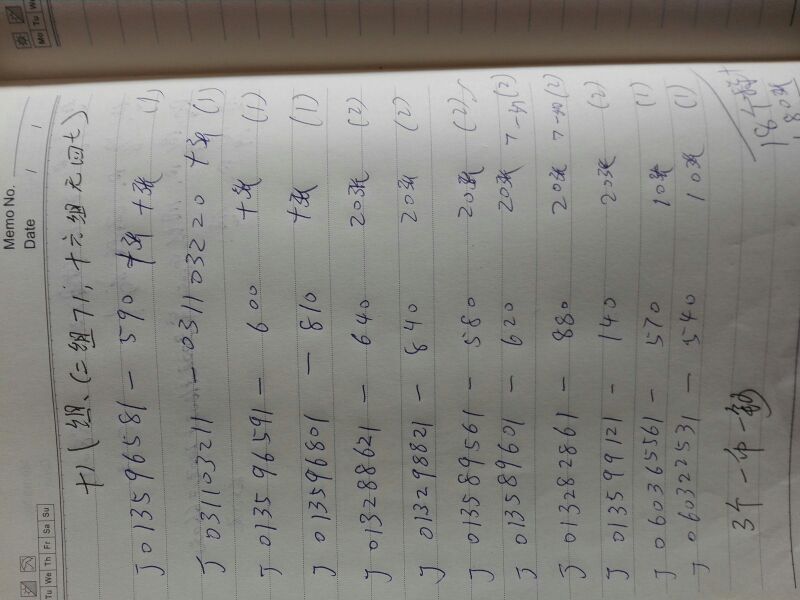 Memo No.
Date / /
Mo Tu We Th Fr Sa Su
J013596581 — 590 十张 (1)
J0311103211 — 0311103220 十张 (1)
J013596591 — 600 十张 (1)
J013596801 — 810 十张 (1)
J013288621 — 640 20张 (2)
J013298821 — 840 20张 (2)
J013589561 — 580 20张 (2)
J013589601 — 620 20张 (2)
J013282861 — 880 20张 (2)
J013599121 — 140 20张 (2)
J060365561 — 570 10张 (1)
J060322531 — 540 10张 (1)
3个一中一
180张